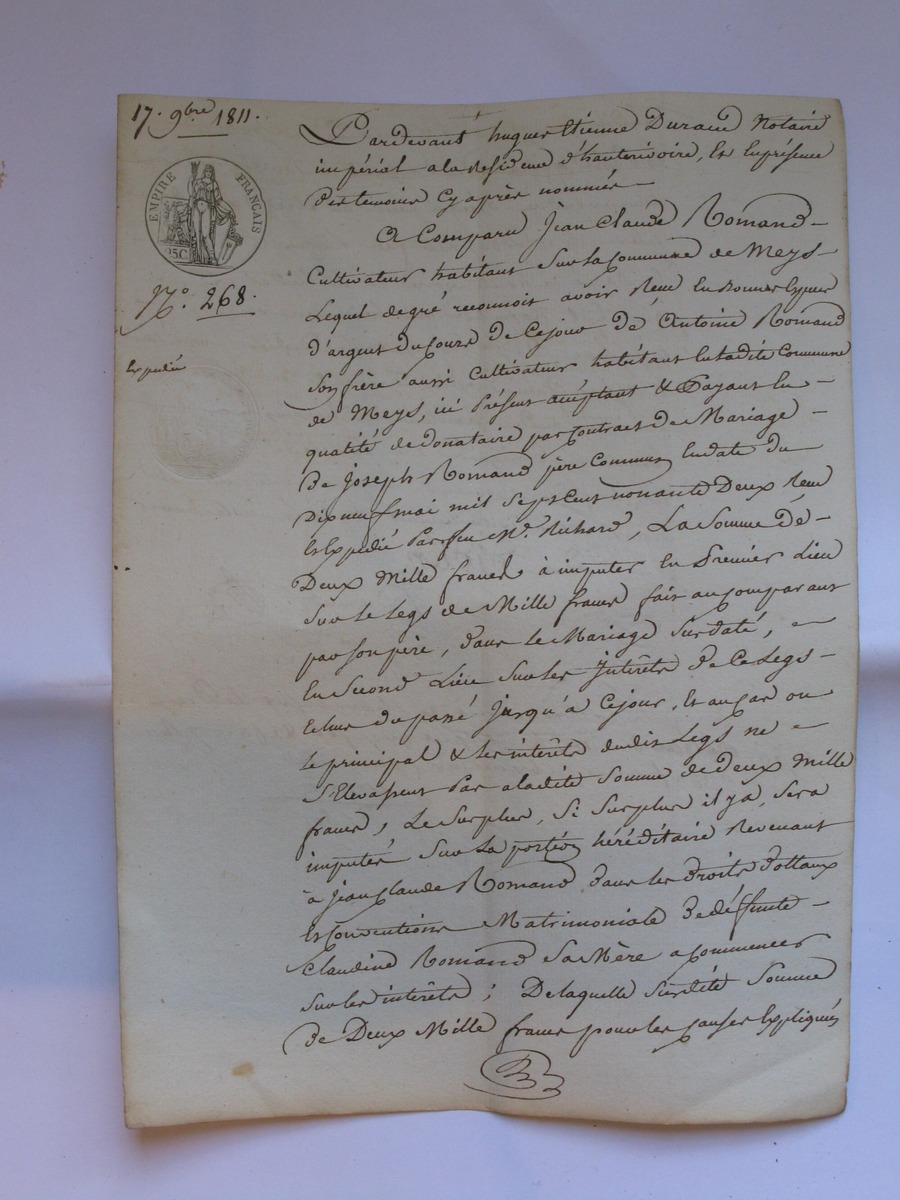 17. 9bre 1811.
EMPIRE FRANÇAIS
25C
No. 268.
Expédié
Pardevant hugues Etienne Durand Notaire
impérial a la Residence d'hauterivoire, Et En présence
des temoins Cy après nommés
A Comparu Jean Claude Romand
Cultivateur habitant Sur la Commune de Meys
Lequel de gré reconnoit avoir Reçu En Bonnes Espèces
d'argent du Cours de Ce jour de Antoine Romand
Son frère aussi Cultivateur habitant Enladite Commune
de Meys, ici Présent acceptant & Payant En
qualité de donataire par Contract de Mariage
De Joseph Romand père Commun Endate du
Dix neuf mai mil Sept Cent nonante Deux Reçu
Et Expédié Par feu Me. Richard, La Somme de
Deux Mille francs à imputer En Premier Lieu
Sur le legs de Mille francs fait au Comparant
par Son père, dans le Mariage Surdaté,
En Second Lieu Sur les Intérêts De Ce Legs
Echus du passé Jusqu'à Cejour, Et au Cas ou
le principal & les intérêts dudit Legs ne
S'Elevassent Pas aladite Somme de Deux Mille
francs, Le Surplus, Si Surplus il y a, Sera
imputés Sur La portion héréditaire Revenant
à Jean Claude Romand Dans les Droits Dottaux
Et Conventions Matrimoniale De deffunte
Claudine Romand Sa Mère a Commencer
Sur les intérêts; De laquelle Susdite Somme
De Deux Mille francs pour les Causes Expliquées